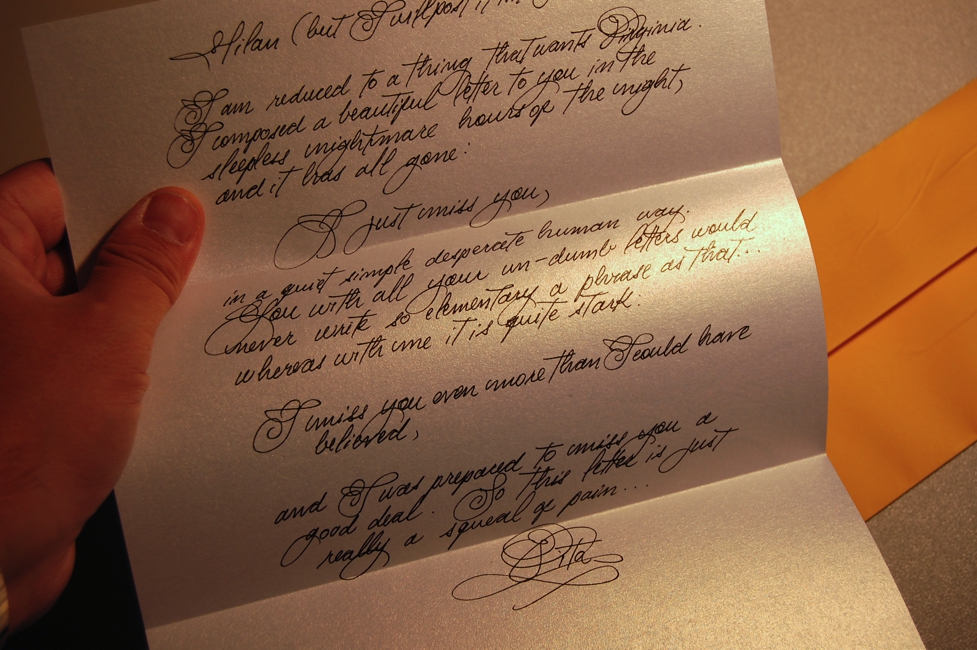 Milan (but I will post it in
I am reduced to a thing that wants Virginia.
I composed a beautiful letter to you in the
sleepless nightmare hours of the night,
and it has all gone:
I just miss you,
in a quiet simple desperate human way.
You with all your un-dumb letters would
never write so elementary a phrase as that...
whereas with me it is quite stark.
I miss you even more than I could have
believed,
and I was prepared to miss you a
good deal. So this letter is just
really a squeal of pain...
Vita